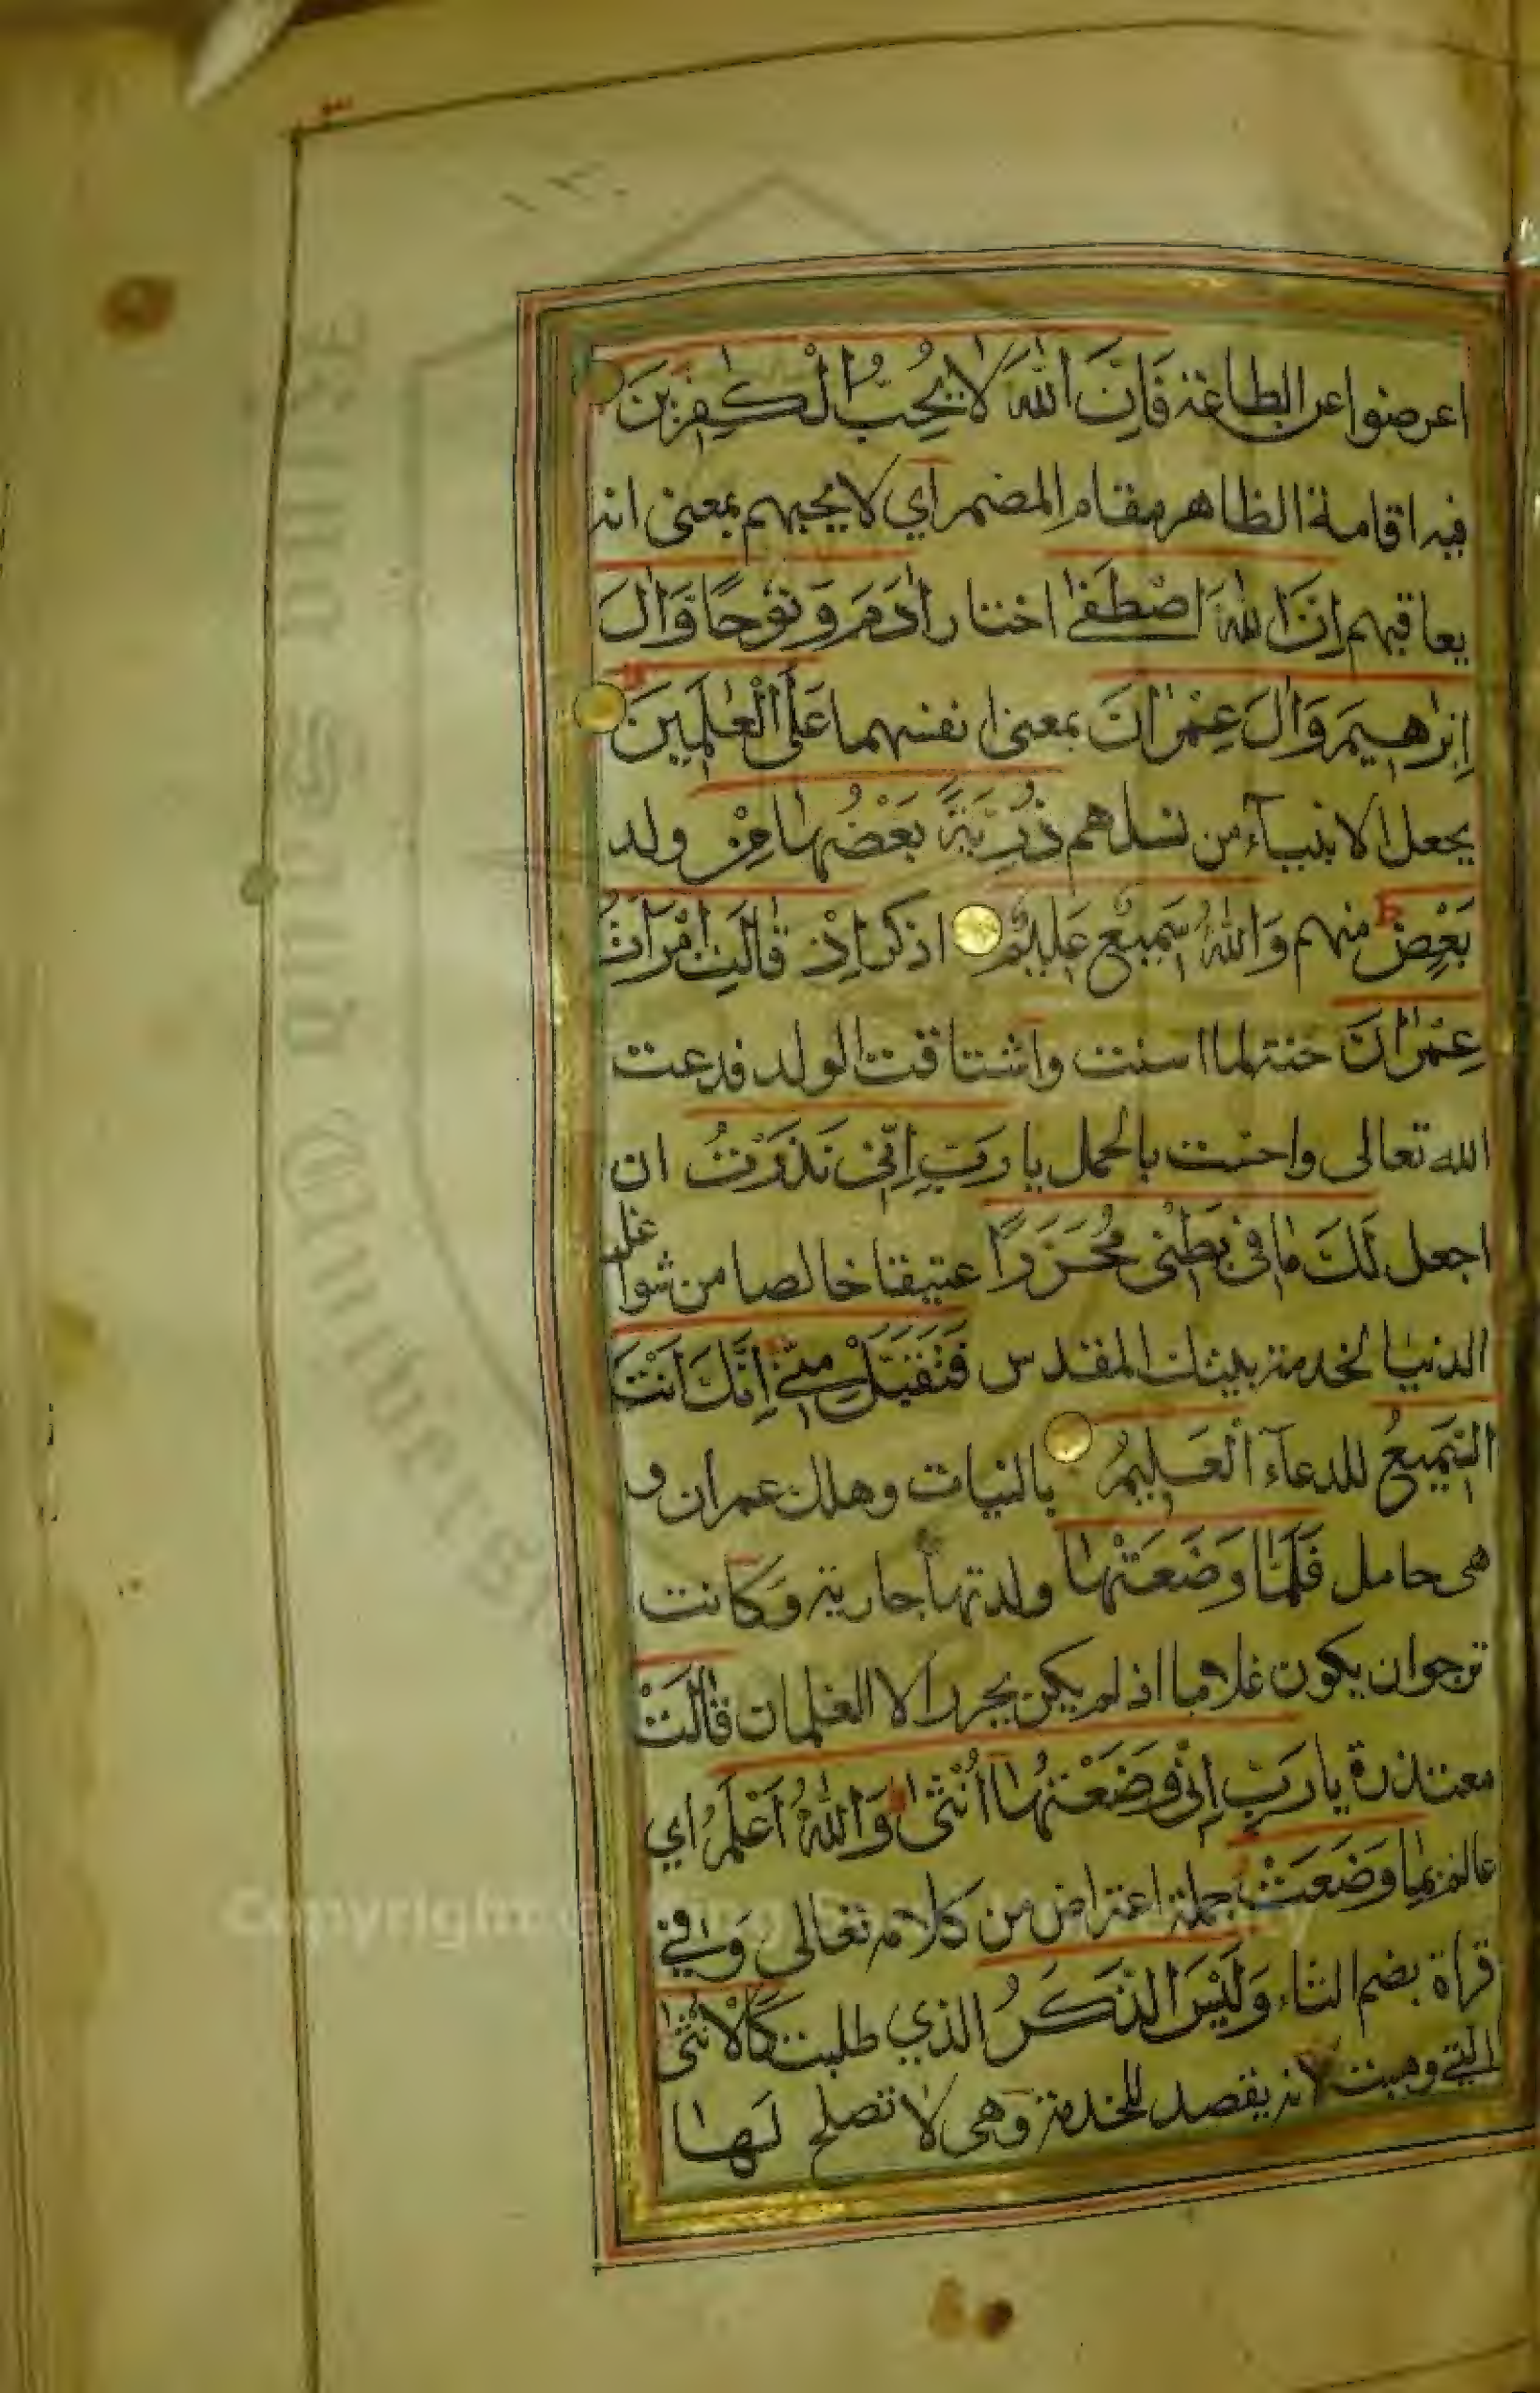 ١٣٠
اعرضوا عن الطاعة فَاِنَّ اللّٰهَ لَا يُحِبُّ الْكٰفِرٖينَ
فيه اقامة الظاهر مقام المضمر اي لا يحبهم بمعنى انه
يعاقبهم اِنَّ اللّٰهَ اصْطَفٰى اختار اٰدَمَ وَ نُوْحًا وَّاٰلَ
اِبْرٰهِيمَ وَاٰلَ عِمْرٰنَ بمعنى انفسهما عَلَى الْعٰلَمِينَ
يجعل الانبيآء من نسلهم ذُرِّيَّةً بَعْضُهَا مِنْ ولد
بَعْضٍ منهم وَاللّٰهُ سَمِيعٌ عَلِيمٌ اذكر اِذْ قَالَتِ امْرَاَتُ
عِمْرٰنَ حنة لما اسنت واشتاقت الولد فدعت
الله تعالى واحست بالحمل يا رَبِّ اِنِّي نَذَرْتُ ان
اجعل لَكَ مَا فِي بَطْنِي مُحَرَّرًا عتيقا خالصا من شواغل
الدنيا لخدمة بيتك المقدس فَتَقَبَّلْ مِنِّي اِنَّكَ اَنْتَ
السَّمِيعُ للدعآء الْعَلِيمُ بالنيات وهلك عمران و
هي حامل فَلَمَّا وَضَعَتْهَا ولدتها جارية وكانت
ترجو ان يكون غلاما اذ لم يكن يحرر الا الغلمان قَالَتْ
معتذرة يا رَبِّ اِنِّي وَضَعْتُهَا اُنْثٰى وَاللّٰهُ اَعْلَمُ اي
عالم بِمَا وَضَعَتْ جملة اعتراض من كلامه تعالى وفي
قراة بضم التاء وَلَيْسَ الذَّكَرُ الذي طلبت كَالْاُنْثٰى
التي وهبت لانه يقصد للخدمة وهي لا تصلح لها
Copyright ©